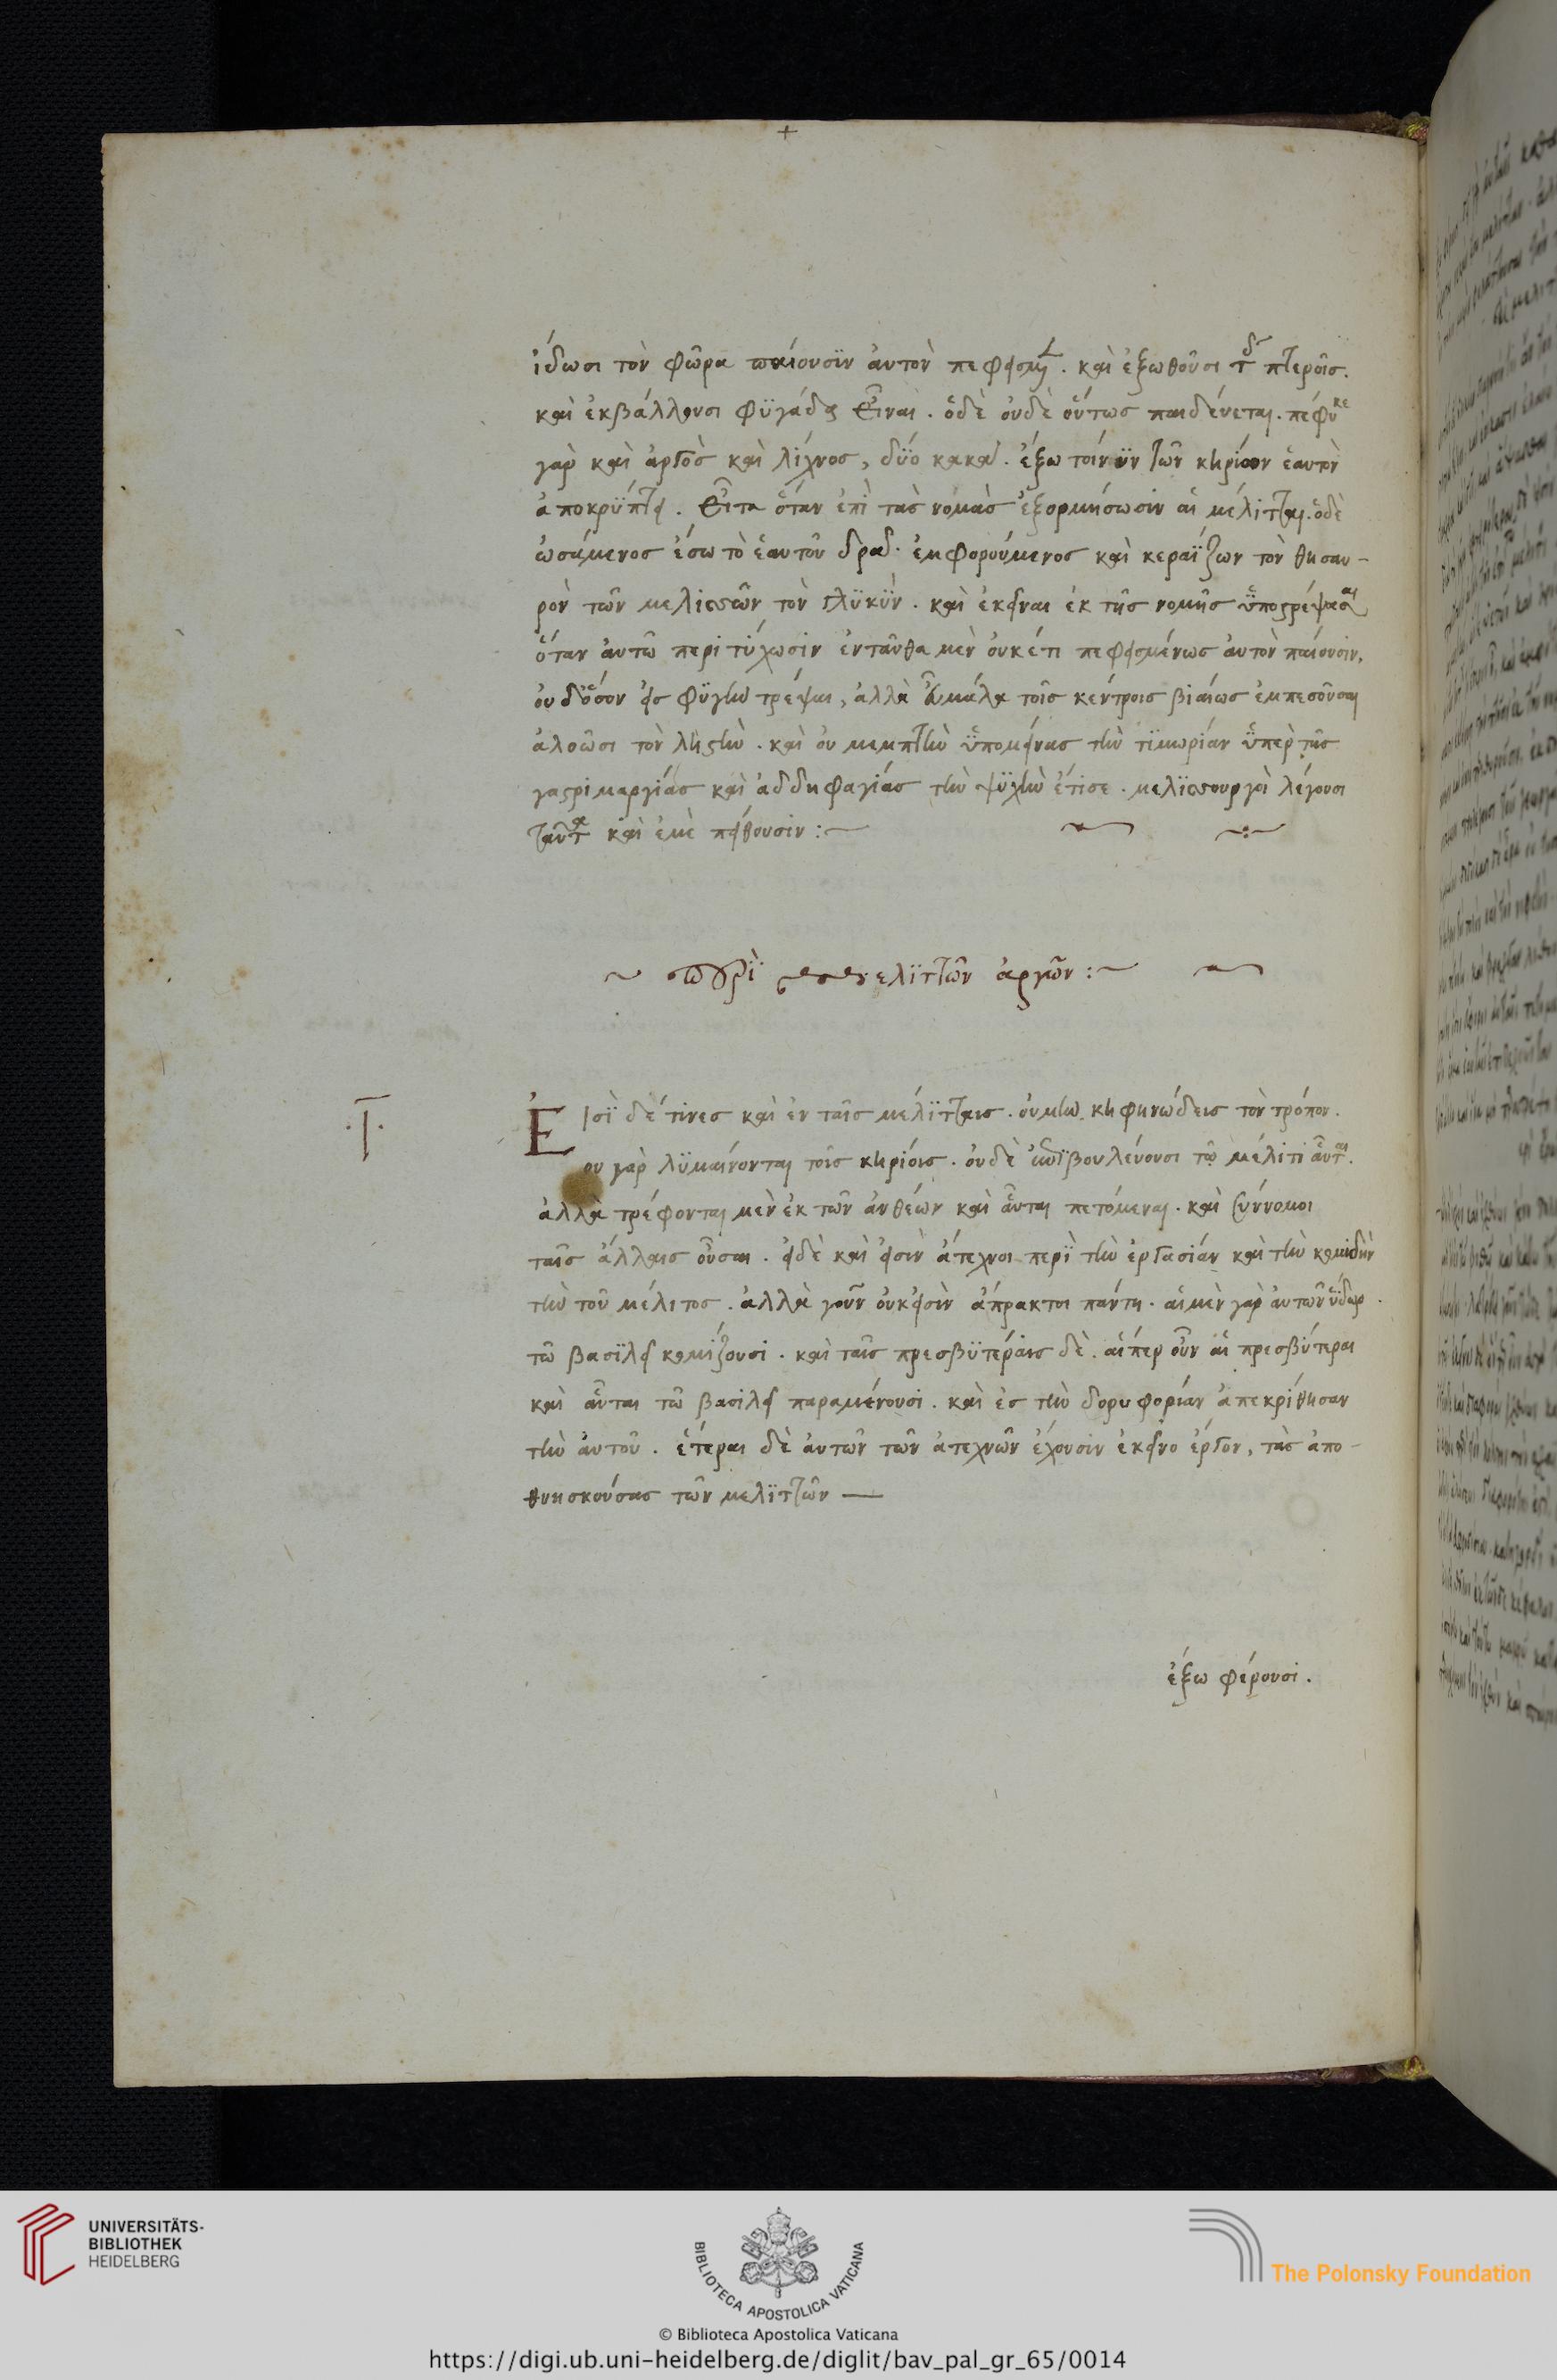 +
ἴδωσι τὸν φῶρα παίουσϊν ἀυτὸν πεφεισμ. καὶ ἐξωθοῦσι τ πτεροῖς.
καὶ ἐκβάλλουσι φϋγάδα εἶναι. ὁδὲ οὐδὲ οὕτως παιδεύεται. πέφυκε
γὰρ καὶ ἀργὸς καὶ λίχνος, δϋό κακά. ἔξω τοίνϋν τῶν κηρίων ἑαυτὸν
ἀποκρϋπτει. εἶτα ὅταν ἐπὶ τὰς νομὰς ἐξορμήσωσιν αἱ μέλιτται. ὁδὲ
ὠσάμενος ἔσω τὸ ἑαυτοῦ δρᾶ. ἐμφορούμενος καὶ κεραΐζων τὸν θησαυ-
ρὸν τῶν μελισσῶν τὸν γλϋκϋν. καὶ ἐκεῖναι ἐκ τῆς νομῆς ϋποστρέψασαι
ὅταν ἀυτῶ περιτύχωσιν ἐνταῦθα μὲν οὐκέτι πεφεισμένως ἀυτὸν παίουσιν,
οὐδ'ὅσον εἰς φϋγὴν τρέψαι, ἀλλὰ εὖ μάλα τοῖς κέντροις βιαίως ἐμπεσοῦσαι
ἀλοῶσι τὸν ληστὴν. καὶ οὐ μεμπτὴν ϋπομείνας τὴν τϊμωρίαν ϋπὲρ τῆς
γαστριμαργίας καὶ ἀδδηφαγίας τὴν ψϋχὴν ἔτισε. μελϊσσουργοὶ λέγουσι
ταῦτα καὶ ἐμὲ πείθουσιν :~
~ περὶ μελϊττῶν ἀργῶν :~
Εἰσϊ δέ τινες καὶ ἐν ταῖς μέλϊτταις. οὐμὴν κηφηνώδεις τὸν τρόπον.
οὐ γὰρ λϋμαίνονται τοῖς κηρίοις. οὐδὲ ἐπϊβουλεύουσι τῶ μέλιτι αὗται.
ἀλλὰ τρέφονται μὲν ἐκ τῶν ἀνθέων καὶ αὗται πετόμεναι. καὶ σύννομοι
ταῖς ἄλλαις οὖσαι. εἰδὲ καὶ εἰσὶν ἄτεχνοι περϊ τὴν ἐργασίαν καὶ τὴν κομιδὴν
τὴν τοῦ μέλιτος. ἀλλὰ γοῦν οὐκεἰσὶν ἄπρακτοι πάντη. αἱμὲν γὰρ ἀυτῶν ὕδωρ
τῶ βασϊλεῖ κομίζουσι. καὶ ταῖς πρεσβϋτέραις δὲ. αἵπερ οὖν αἱ πρεσβύτεραι
καὶ αὗται τῶ βασιλεῖ παραμένουσι. καὶ ἐς τὴν δορυφορίαν ἀπεκρίθησαν
τὴν ἀυτοῦ. ἕτεραι δὲ ἀυτῶν τῶν ἀτεχνῶν ἔχουσιν ἐκεῖνο ἔργον, τὰς ἀπο-
θνησκούσας τῶν μελϊττῶν —
ἔξω φέρουσι.
UNIVERSITÄTS-
BIBLIOTHEK
HEIDELBERG
BIBLIOTECA APOSTOLICA VATICANA
The Polonsky Foundation
© Biblioteca Apostolica Vaticana
https://digi.ub.uni-heidelberg.de/diglit/bav_pal_gr_65/0014